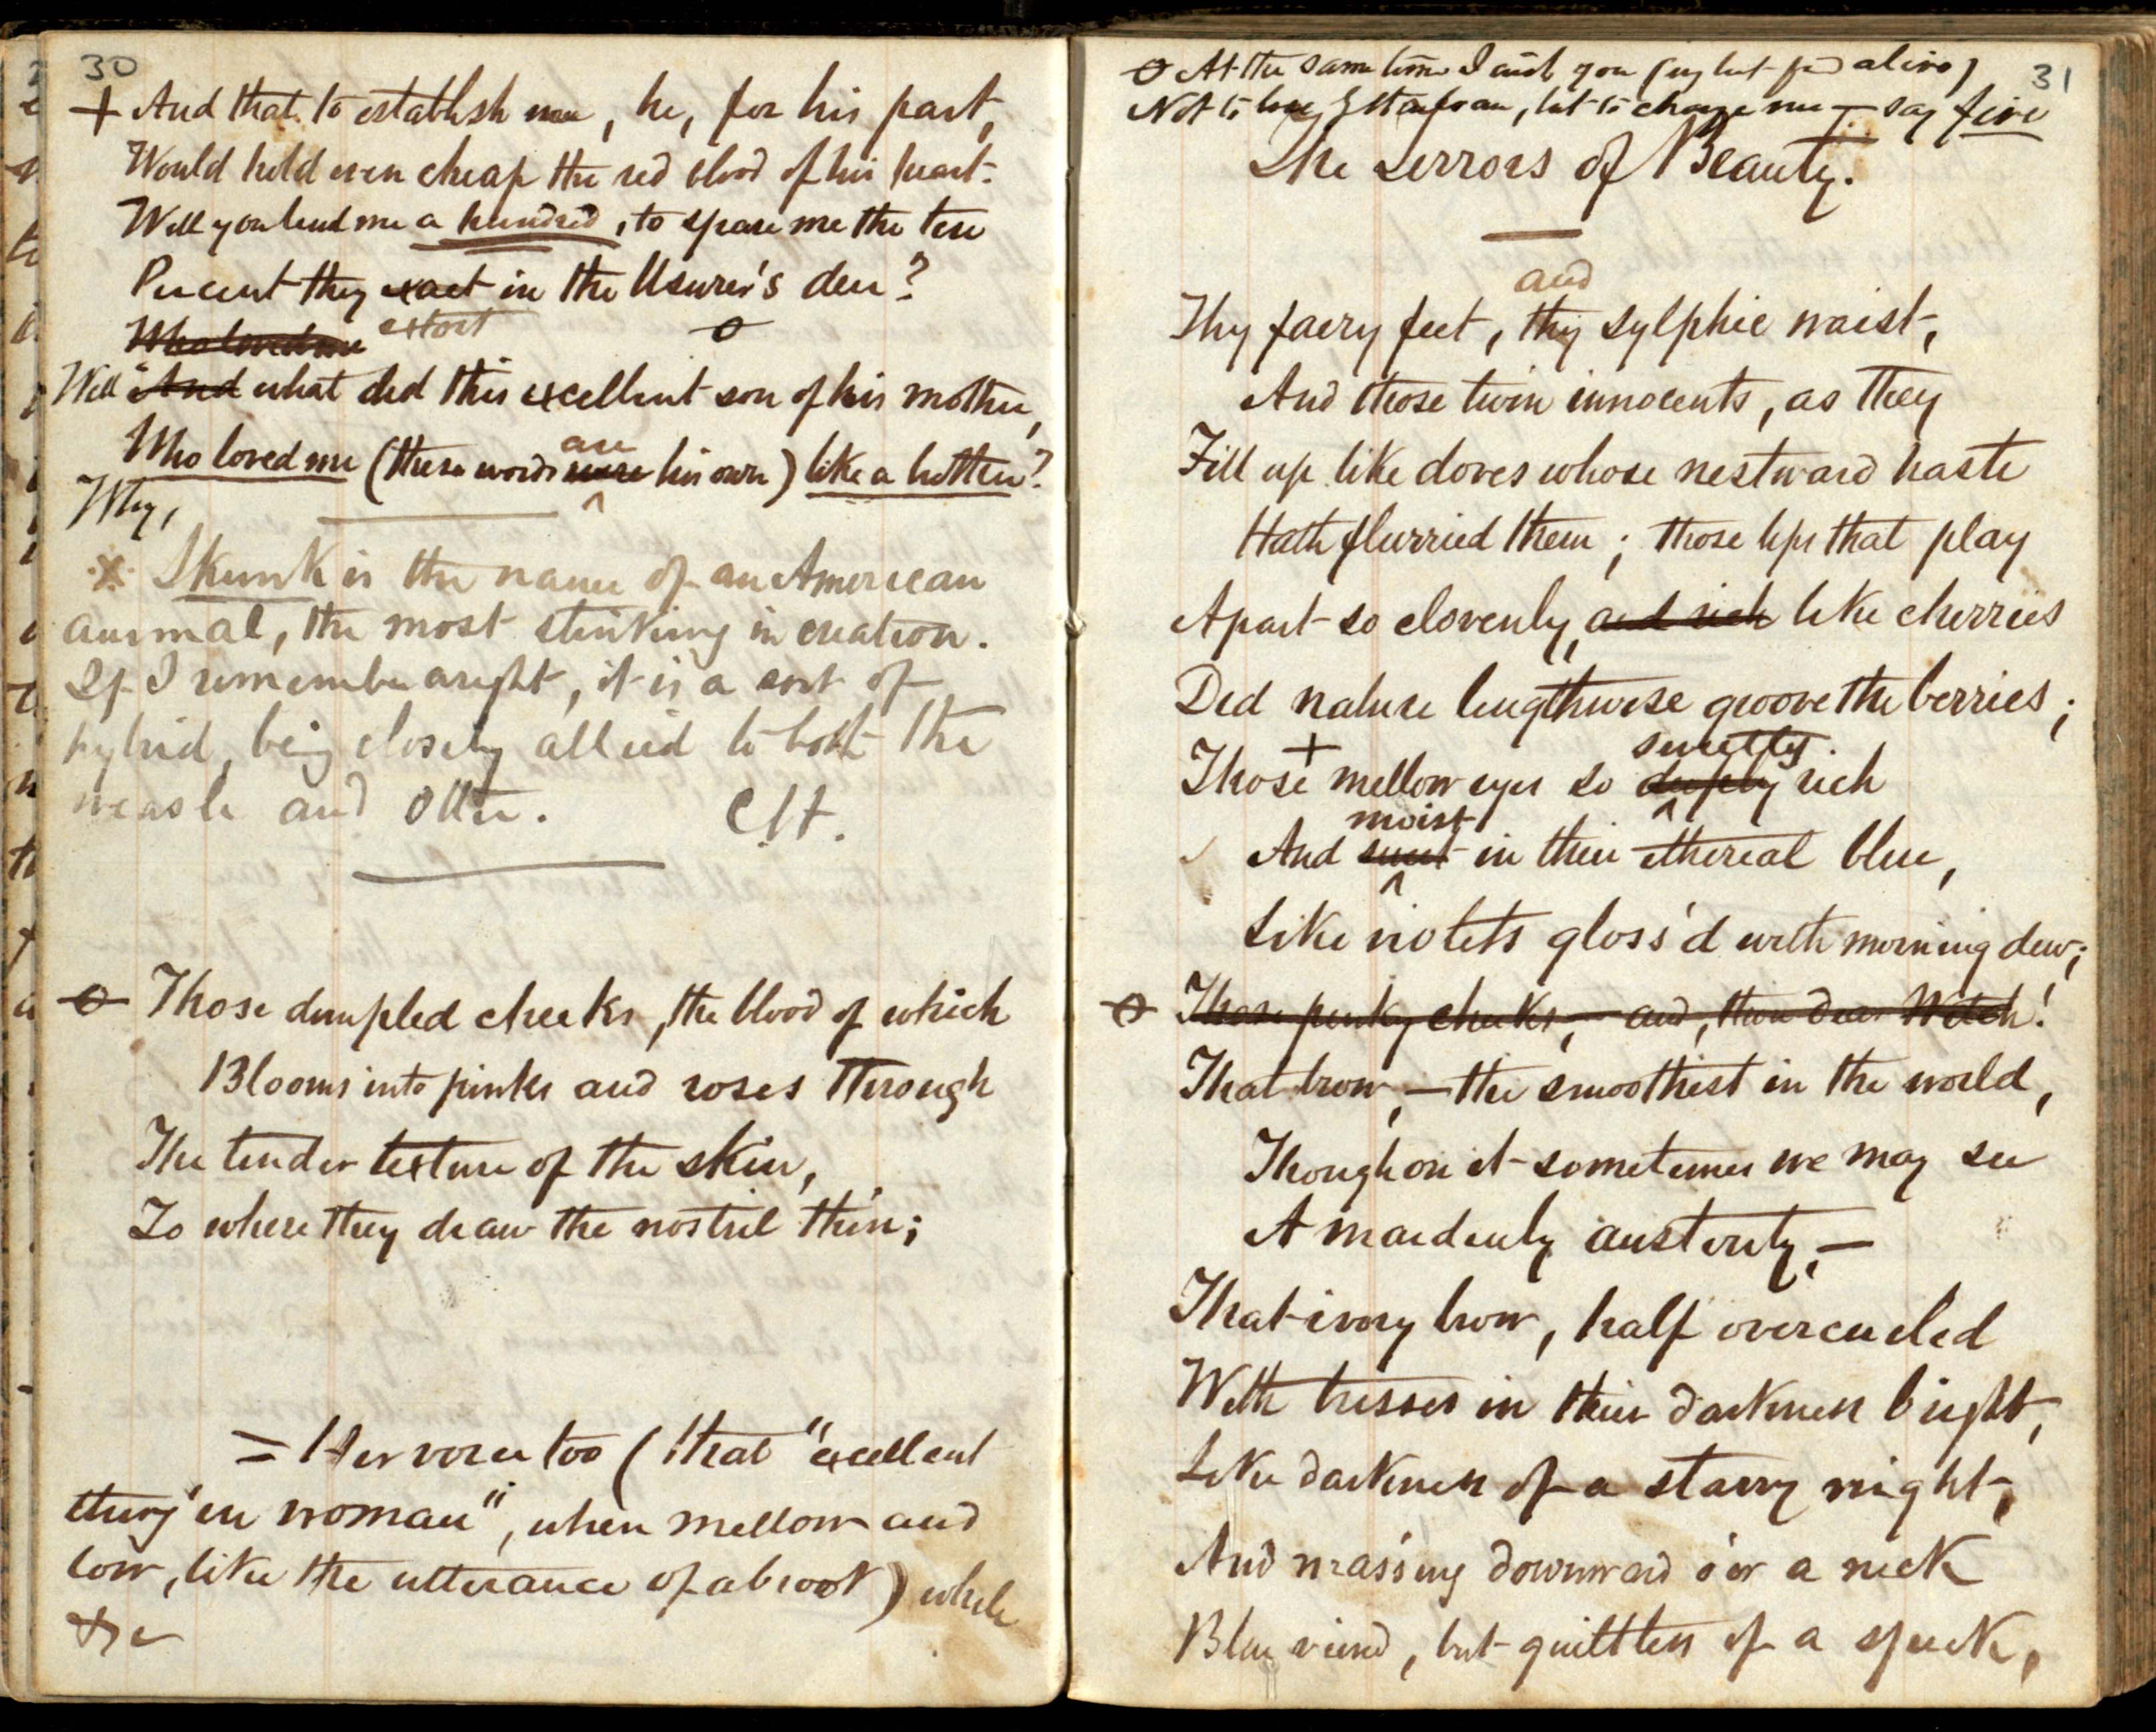 30
+ And that to establish me, he, for his part,
Would hold even cheap the red blood of his heart.
Will you lend me a hundred, to spare me the ten
Per cent they exact in the Usurer's den?
Who loved me extort
o
Well And what did this excellent son of his mother,
are
Who loved me (these words were his own) like a brother?
Why,
* Skunk is the name of an American
animal, the most stinking in creation.
If I remember aright, it is a sort of
hybrid, being closely allied to both the
weasle and Otter. C H.
o Those dimpled cheeks, the blood of which
Blooms into pinks and roses through
The tender texture of the skin,
To where they draw the nostril thin;
= Her voice too (that "excellent
thing in woman", when mellow and
low, like the utterance of a brook) while
&c
31
o At the same time I wish you (my best friend alive)
Not to lose by the loan, but to charge me — say five
The Terrors of Beauty.
and
Thy faery feet, thy sylphic waist,
And those twin innocents, as they
Fill up like doves whose nestward haste
Hath flurried them; those lips that play
Apart so clovenly, and rich like cherries
Did nature lengthwise groove the berries;
+ sweetly
Those mellow eyes so deeply rich
moist
And sweet in their ethereal blue,
Like violets gloss'd with morning dew;
o Those pinky cheeks, — and, thou dear Witch!
That brow, — the smoothest in the world,
Though on it sometimes we may see
A maidenly austerity, —
That ivory brow, half overcurled
With tresses in their darkness bright,
Like darkness of a starry night,
And massing downward o'er a neck
Blue vein'd, but guiltless of a speck,